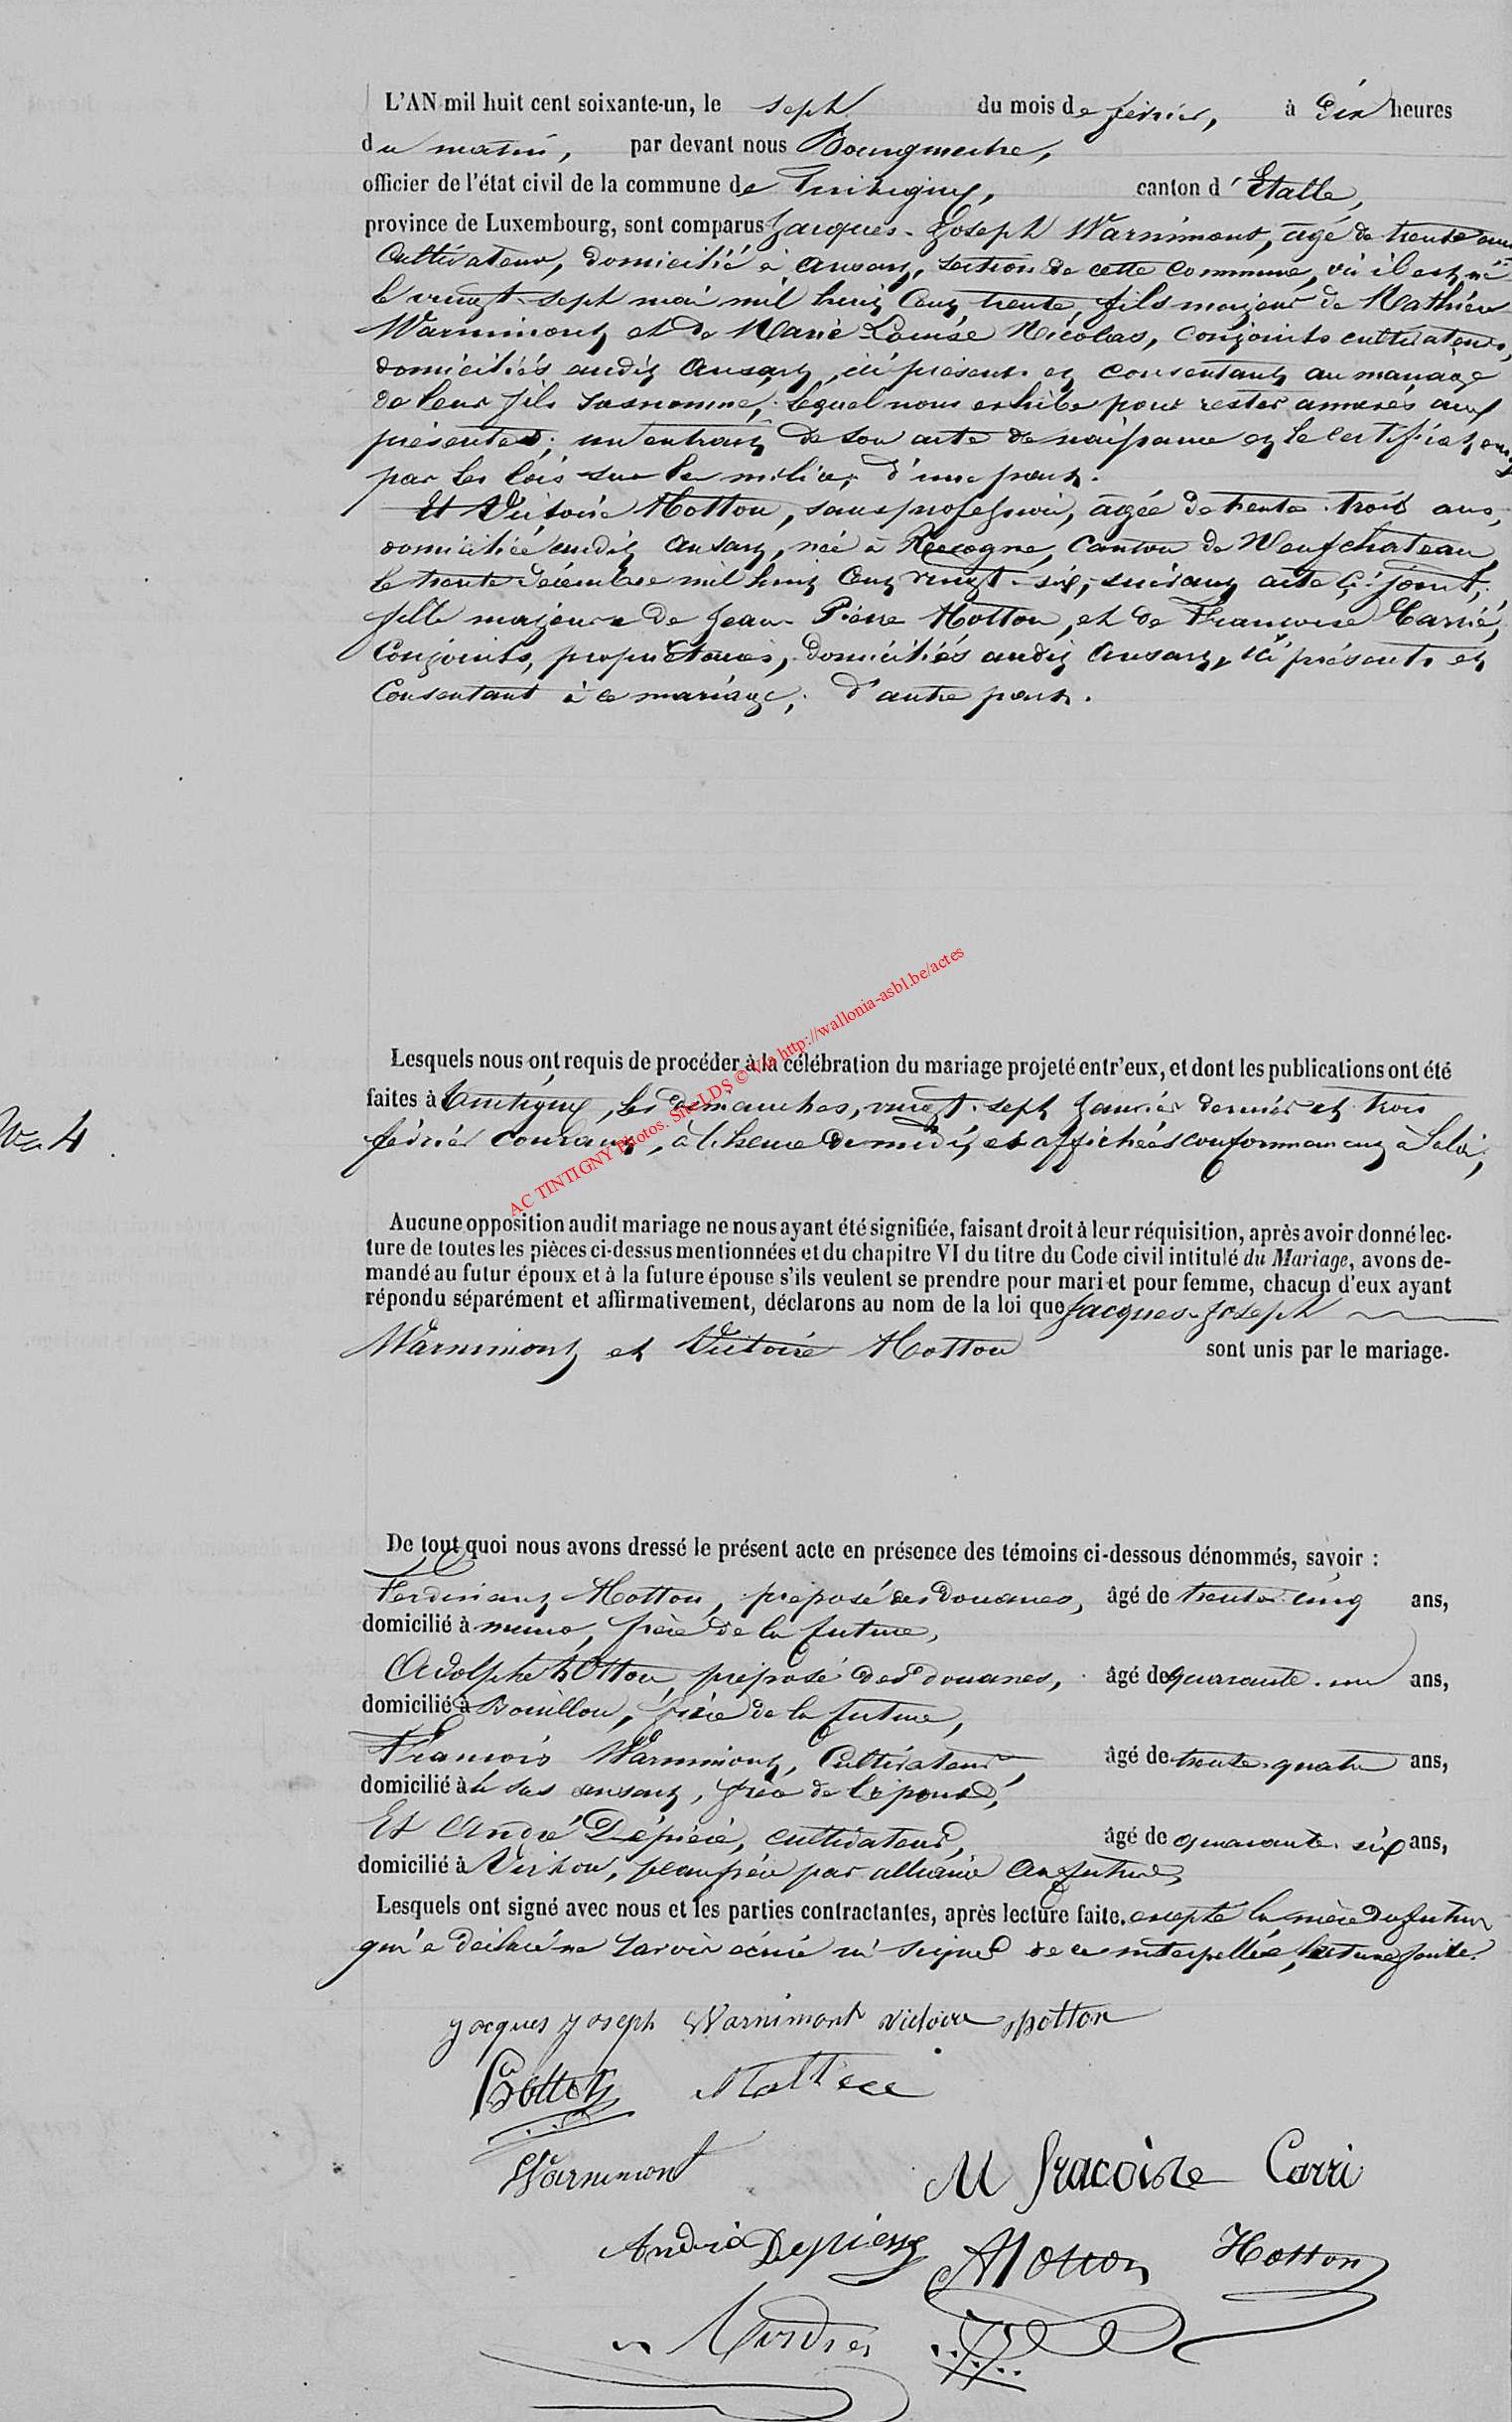 L'AN mil huit cent soixante-un, le sept du mois de février, à dix heures
du matin, par devant nous Bourgmestre,
officier de l'état civil de la commune de Tintigny, canton d'Etalle,
province de Luxembourg, sont comparus Jacques-Joseph Warnimont, agé de trente ans
Cultivateur, domicilié à Ansart, section de cette commune, où il est né
le vingt-sept mai mil huit cent trente, fils majeur de Mathieu
Warnimont et de Marie-Louise Nicolas, conjoints cultivateurs,
domiciliés audit Ansart, ici présents et consentant au mariage
de leur fils susnommé, lequel nous exhibe pour rester annexés aux
présentes, un extrait de son acte de naissance et le certificat
par les lois sur la milice, d'une part.
Et Victoire Hotton, sans profession, agée de trente-trois ans,
domiciliée audit Ansart, née à Recogne, canton de Neufchateau,
le trente décembre mil huit cent vingt-six, suivant acte ci-joint,
fille majeure de Jean-Pierre Hotton, et de Françoise Carrié,
Conjoints, propriétaires, domiciliés audit Ansart, ici présents et
Consentant à ce mariage, d'autre part.
Lesquels nous ont requis de procéder à la célébration du mariage projeté entr'eux, et dont les publications ont été
faites à Tintigny, les dimanches, vingt-sept Janvier dernier et trois
N° 4
février courant, à l'heure de midi, et affichées conformément à la loi;
AC TINTIGNY Photos. Site LDS © Via http://wallonia-asbl.be/actes
Aucune opposition audit mariage ne nous ayant été signifiée, faisant droit à leur réquisition, après avoir donné lec-
ture de toutes les pièces ci-dessus mentionnées et du chapitre VI du titre du Code civil intitulé du Mariage, avons de-
mandé au futur époux et à la future épouse s'ils veulent se prendre pour mari et pour femme, chacun d'eux ayant
répondu séparément et affirmativement, déclarons au nom de la loi que Jacques-Joseph
Warnimont et Victoire Hotton sont unis par le mariage.
De tout quoi nous avons dressé le présent acte en présence des témoins ci-dessous dénommés, savoir :
Ferdinand Hotton, préposé des douanes, âgé de trente-cinq ans,
domicilié à frère de la future,
Adolphe hotton, préposé des douanes, âgé de quarante-un ans,
domicilié à Bouillon, frère de la future,
François Warnimont, Cultivateur, âgé de trente-quatre ans,
domicilié à ansart, frère de l'époux,
Et André Dépiéré, cultivateur, âgé de quarante-six ans,
domicilié à Virton, beaufrère par alliance
Lesquels ont signé avec nous et les parties contractantes, après lecture faite, excepté la mère du futur
qui a déclaré ne savoir écrire ni signer de ce interpellée, lecture faite.
Jacques Joseph Warnimont Victoire hotton
Hotton
Warnimont M fracoise Carri
André Hotton Hotton